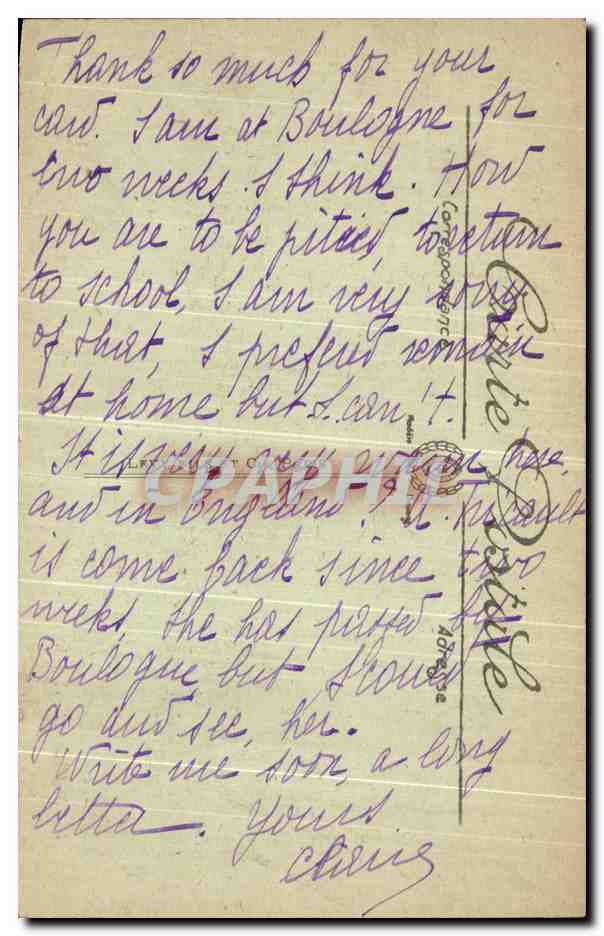 Thank so much for your
card. I am at Boulogne for
two weeks I think. How
you are to be pitied, to return
to school, I am very sorry
of that, I prefered remain
at home but I can't.
It is very here,
and in England. M.
is come back since two
weeks, she has passed by
Boulogne but I could
go and see, her.
Write me soon, a long
letter. Yours
Carte Postale
Correspondance
Adresse
CPAPHIL